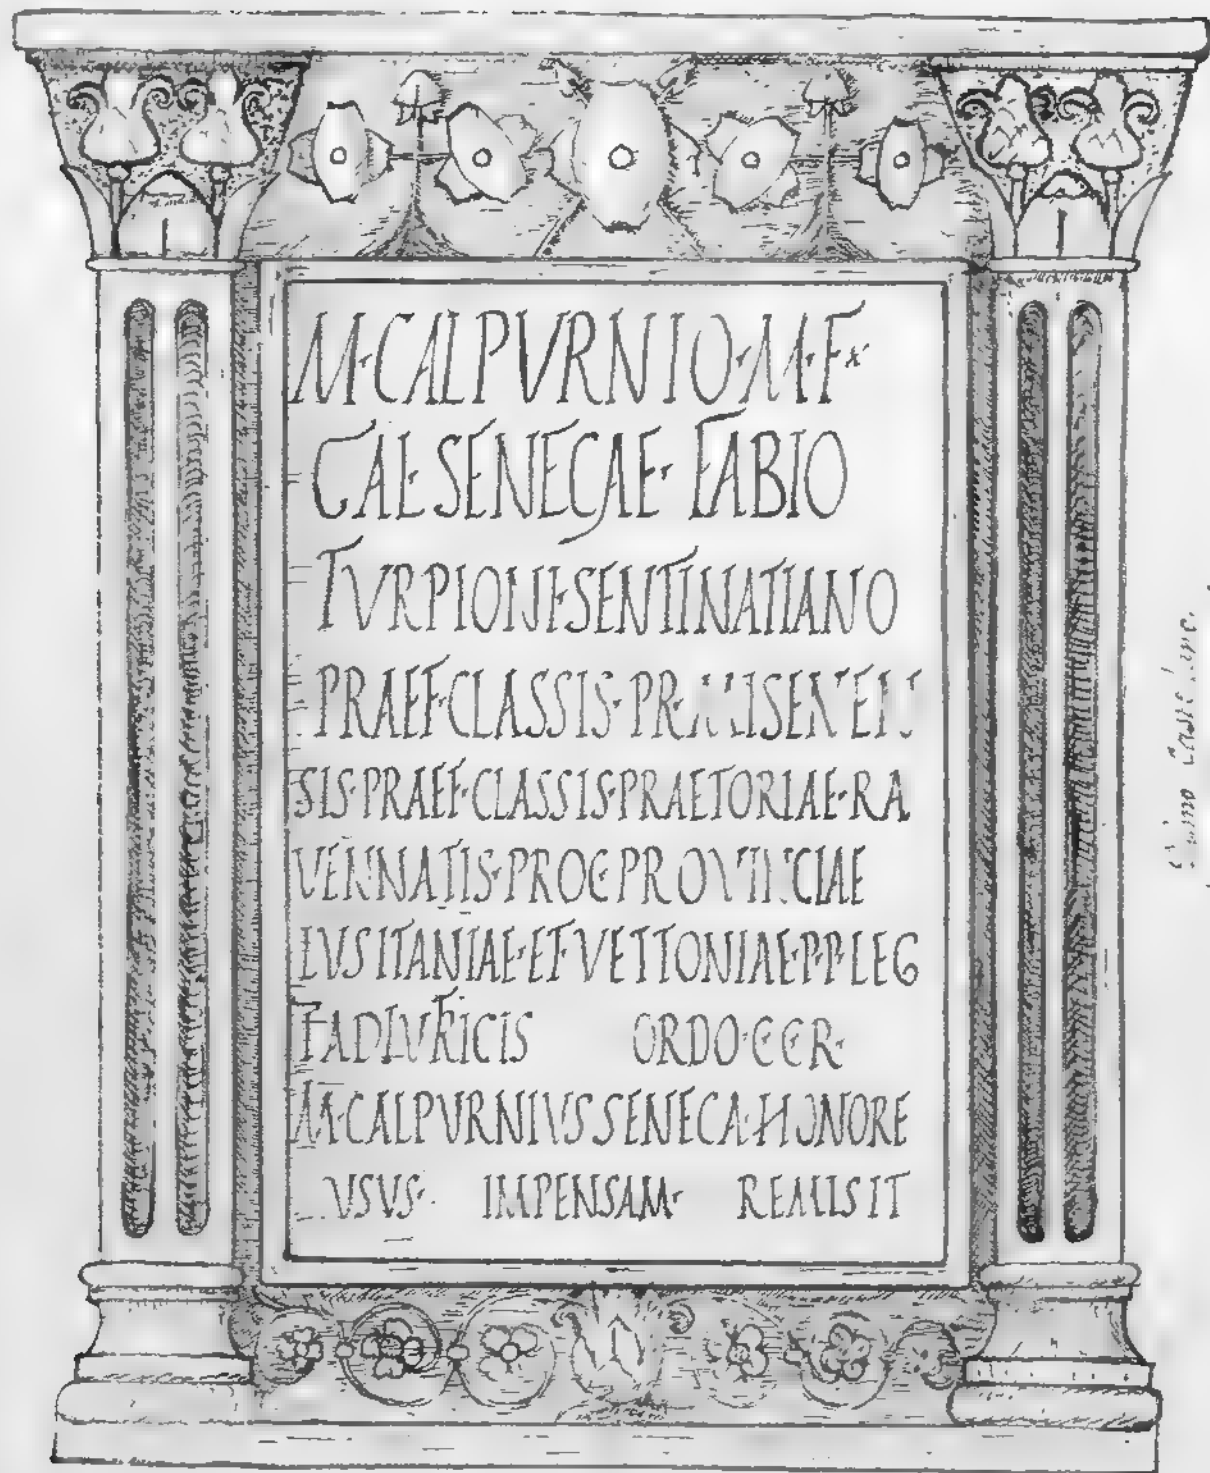 M·CALPVRNIO·M·F
GAL·SENECAE·FABIO
TVRPIONI·SENTINATIANO
PRAEF·CLASSIS·PR·MISENEN
SIS·PRAEF·CLASSIS·PRAETORIAE·RA
VENNATIS·PROC·PROVINCIAE
LVSITANIAE·ET·VETTONIAE·P·P·LEG
I·ADIVTRICIS ORDO·C·C·R·
M·CALPVRNIVS SENECA·HONORE
VSVS· IMPENSAM· REMISIT